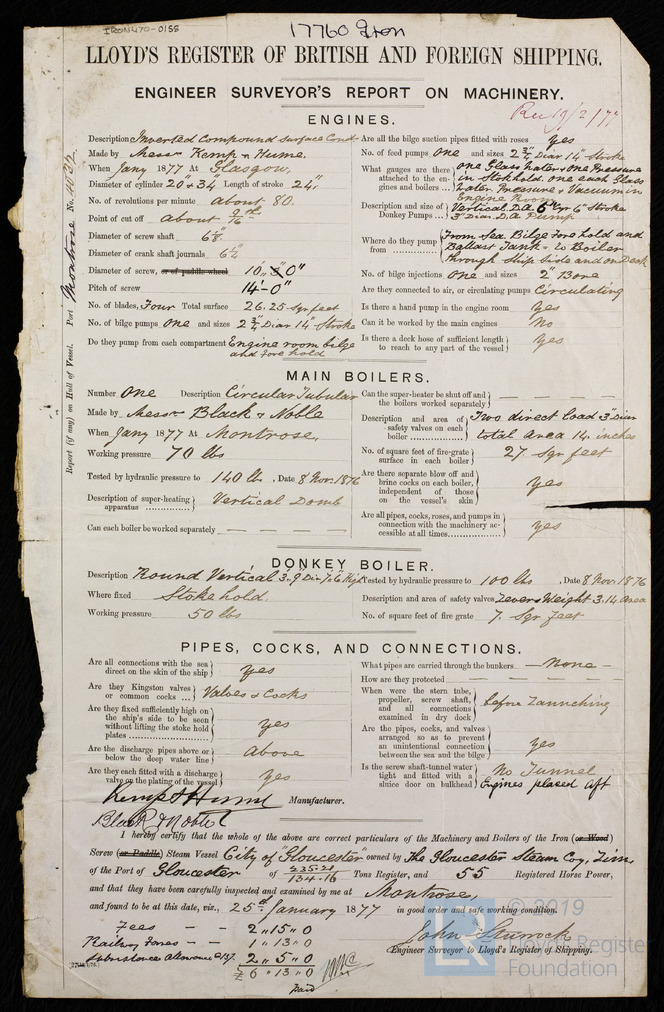 IRON470-0155
17760 Iron
LLOYD'S REGISTER OF BRITISH AND FOREIGN SHIPPING.
ENGINEER SURVEYOR'S REPORT ON MACHINERY.
Port Montrose No.
Report (if any) on Hull of Vessel.
ENGINES.
Description Inverted Compound Surface Cond
Made by Messrs Kemp & Hume.
When Jany 1877 At Glasgow,
Diameter of cylinder 20 & 34 Length of stroke 24"
No. of revolutions per minute about 80.
Point of cut off about
Diameter of screw shaft 6⅞"
Diameter of crank shaft journals 6½
Diameter of screw, or of paddle wheel 10"0"
Pitch of screw 14'-0"
No. of blades, Four Total surface 26.25 Sqr feet
No. of bilge pumps one and sizes 2¾ Diar 14" Stroke
Do they pump from each compartment Engine room bilge
and Fore hold
Are all the bilge suction pipes fitted with roses yes
No. of feed pumps one and sizes 2¾ Diar 14" Stroke
What gauges are there attached to the engines and boilers ... one Glass Water & one Pressure
in Stokhold. one each Glass
Water Pressure & Vacuum in
Engine Room
Description and size of Donkey Pumps ... Vertical D.A. 6" Cyr 6" Stroke
3" Diar. D.A Pump
Where do they pump from From Sea Bilge Fore hold and
Ballast Tank - to Boiler
through Ship Side and on Deck
No. of bilge injections one and sizes 2" Bore
Are they connected to air, or circulating pumps Circulating
Is there a hand pump in the engine room Yes
Can it be worked by the main engines No
Is there a deck hose of sufficient length to reach to any part of the vessel Yes
MAIN BOILERS.
Number One Description Circular Tubular
Made by Messrs Black & Noble
When Jany 1877 At Montrose,
Working pressure 70 lbs
Tested by hydraulic pressure to 140 lb. Date 8 Nov. 1876
Description of super-heating apparatus Vertical Domb
Can each boiler be worked separately — — —
Can the super-heater be shut off and the boilers worked separately — — — —
Description and area of safety valves on each boiler Two direct load 3" Diar
total area 14. inches
No. of square feet of fire-grate surface in each boiler 27. Sqr feet
Are there separate blow off and brine cocks on each boiler, independent of those on the vessel's skin yes
Are all pipes, cocks, roses, and pumps in connection with the machinery accessible at all times yes
DONKEY BOILER.
Description Round Vertical 3'.9 Dia 7'.6" High
Where fixed Stokehold.
Working pressure 50 lbs
Tested by hydraulic pressure to 100 lbs, Date 8 Nov. 1876
Description and area of safety valves Lever & Weight 3.14 Area
No. of square feet of fire grate 7. Sqr Feet
PIPES, COCKS, AND CONNECTIONS.
Are all connections with the sea direct on the skin of the ship yes
Are they Kingston valves or common cocks ... Valves & Cocks
Are they fixed sufficiently high on the ship's side to be seen without lifting the stoke hold plates yes
Are the discharge pipes above or below the deep water line Above
Are they each fitted with a discharge valve on the plating of the vessel yes
What pipes are carried through the bunkers — None —
How are they protected — — — —
When were the stern tube, propeller, screw shaft, and all connections examined in dry dock before Launching
Are the pipes, cocks, and valves arranged so as to prevent an unintentional connection between the sea and the bilge yes
Is the screw shaft-tunnel water tight and fitted with a sluice door on bulkhead No Tunnel
Engines placed aft
Kemp & Hume Manufacturer.
Black & Noble
I hereby certify that the whole of the above are correct particulars of the Machinery and Boilers of the Iron (or Wood)
Screw (or Paddle) Steam Vessel City of "Gloucester" owned by The Gloucester Steam Coy, Lim
of the Port of Gloucester of 235.21 / 134.16 Tons Register, and 55 Registered Horse Power,
and that they have been carefully inspected and examined by me at Montrose,
and found to be at this date, viz., 25th January 1877 in good order and safe working condition.
Fees — — 2 " 15 " 0
Railway Fares — — 1 " 13 " 0
Subsistance allowance 2 " 5 " 0
£ 6 " 13 " 0
Paid
John Sturrock
Engineer Surveyor to Lloyd's Register of Shipping.
© 2019
LR
Lloyd's Register
Foundation